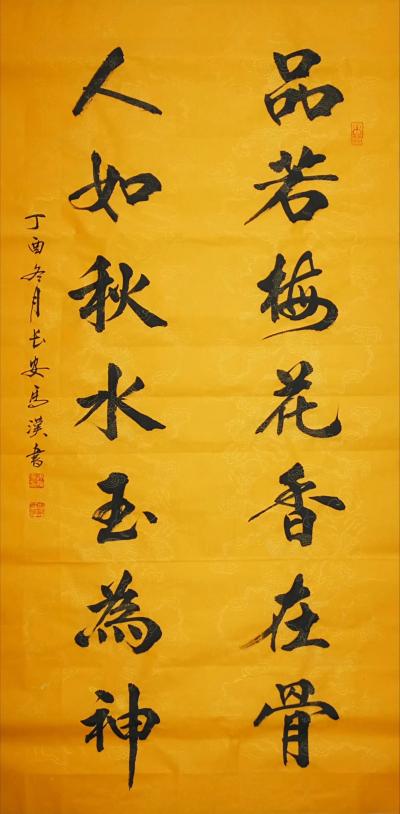 品若梅花香在骨
人如秋水玉為神
丁酉冬月长安馬漢書